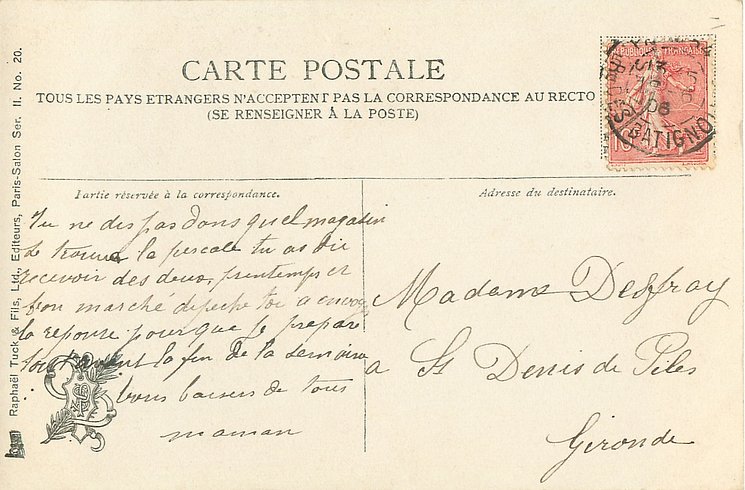 CARTE POSTALE
TOUS LES PAYS ETRANGERS N'ACCEPTENT PAS LA CORRESPONDANCE AU RECTO
(SE RENSEIGNER À LA POSTE)
REPUBLIQUE FRANÇAISE
10
06
BATIGNO
Partie réservée à la correspondance.
Adresse du destinataire.
Tu ne dis pas dans quel magasin
se trouve la percale tu as du
recevoir des deux, printemps et
bon marché dépeche toi a
la reponse pour que je prepare
tout avant la fin de la semaine
bons baisers de tous
maman
Madame Desfray
a St Denis de Piles
Gironde
Raphaël Tuck & Fils, Ltd., Editeurs, Paris-Salon Ser. II. No. 20.